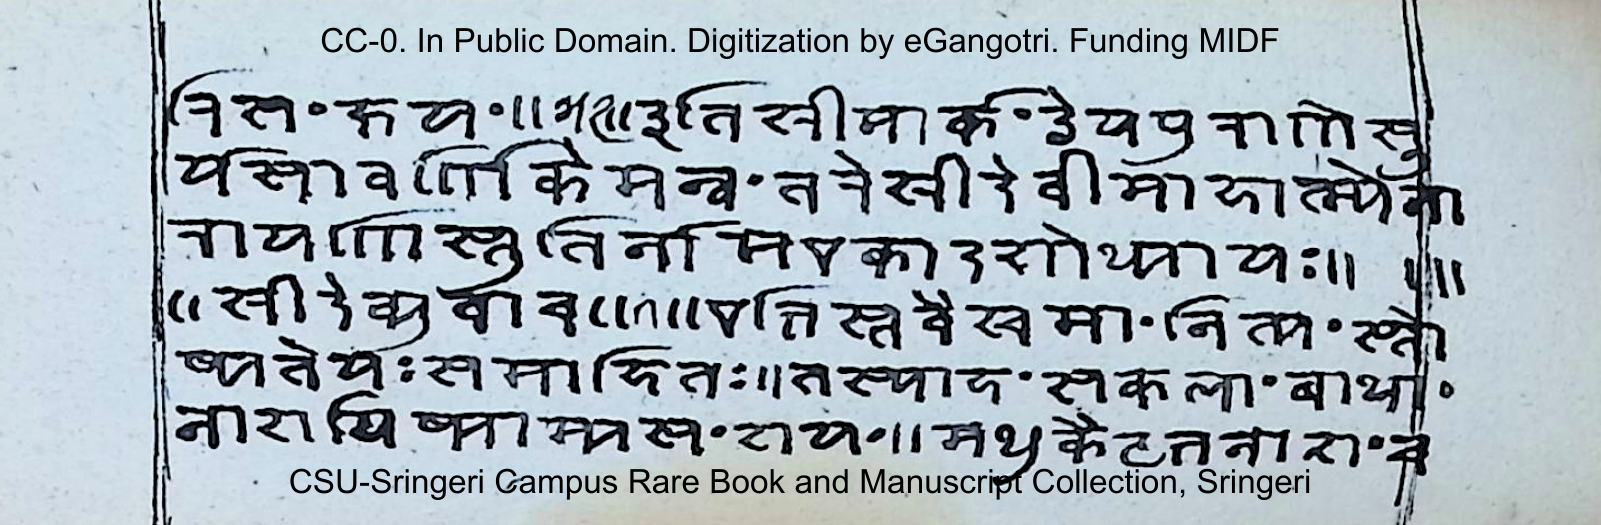 CC-0. In Public Domain. Digitization by eGangotri. Funding MIDF
रिस॰क्षय॰॥ इति स्रीमार्क॰डेयपुराणे सू
र्यसावर्णिके मन्व॰तरे स्रीदेवीमाहात्म्ये ना
रायणिस्तुतिर्नामएकादशोध्यायः॥ ॥
॥स्रीदेव्युवाच॥१॥एभिस्तवैस्च मा॰नित्य॰स्तो
ष्यते यः समाहितः॥तस्याह॰सकला॰बाधा॰
नाशयिष्याम्यस॰शय॰॥मधुकैटभनाश॰च
CSU-Sringeri Campus Rare Book and Manuscript Collection, Sringeri